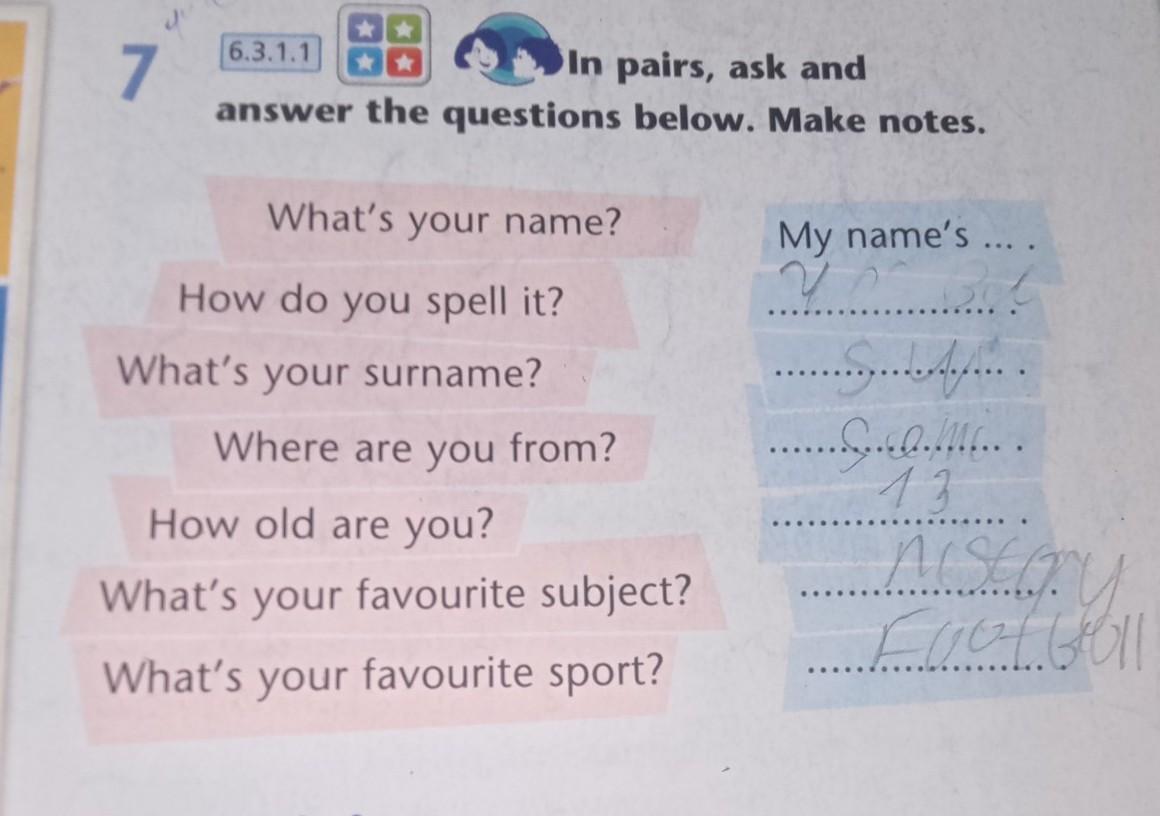 7 6.3.1.1 In pairs, ask and
answer the questions below. Make notes.
What's your name? My name's ... .
How do you spell it? ...................... .
What's your surname? ...................... .
Where are you from? ...................... .
How old are you? 13 ...................... .
What's your favourite subject? ...................... .
What's your favourite sport? Football